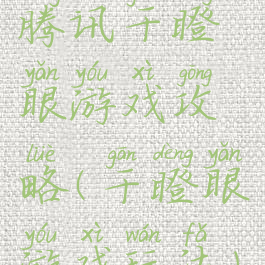 腾讯干瞪
yǎn yóu xì gōng
眼游戏攻
lüè gān dèng yǎn
略(干瞪眼
yóu xì wán fǎ
游戏玩法)